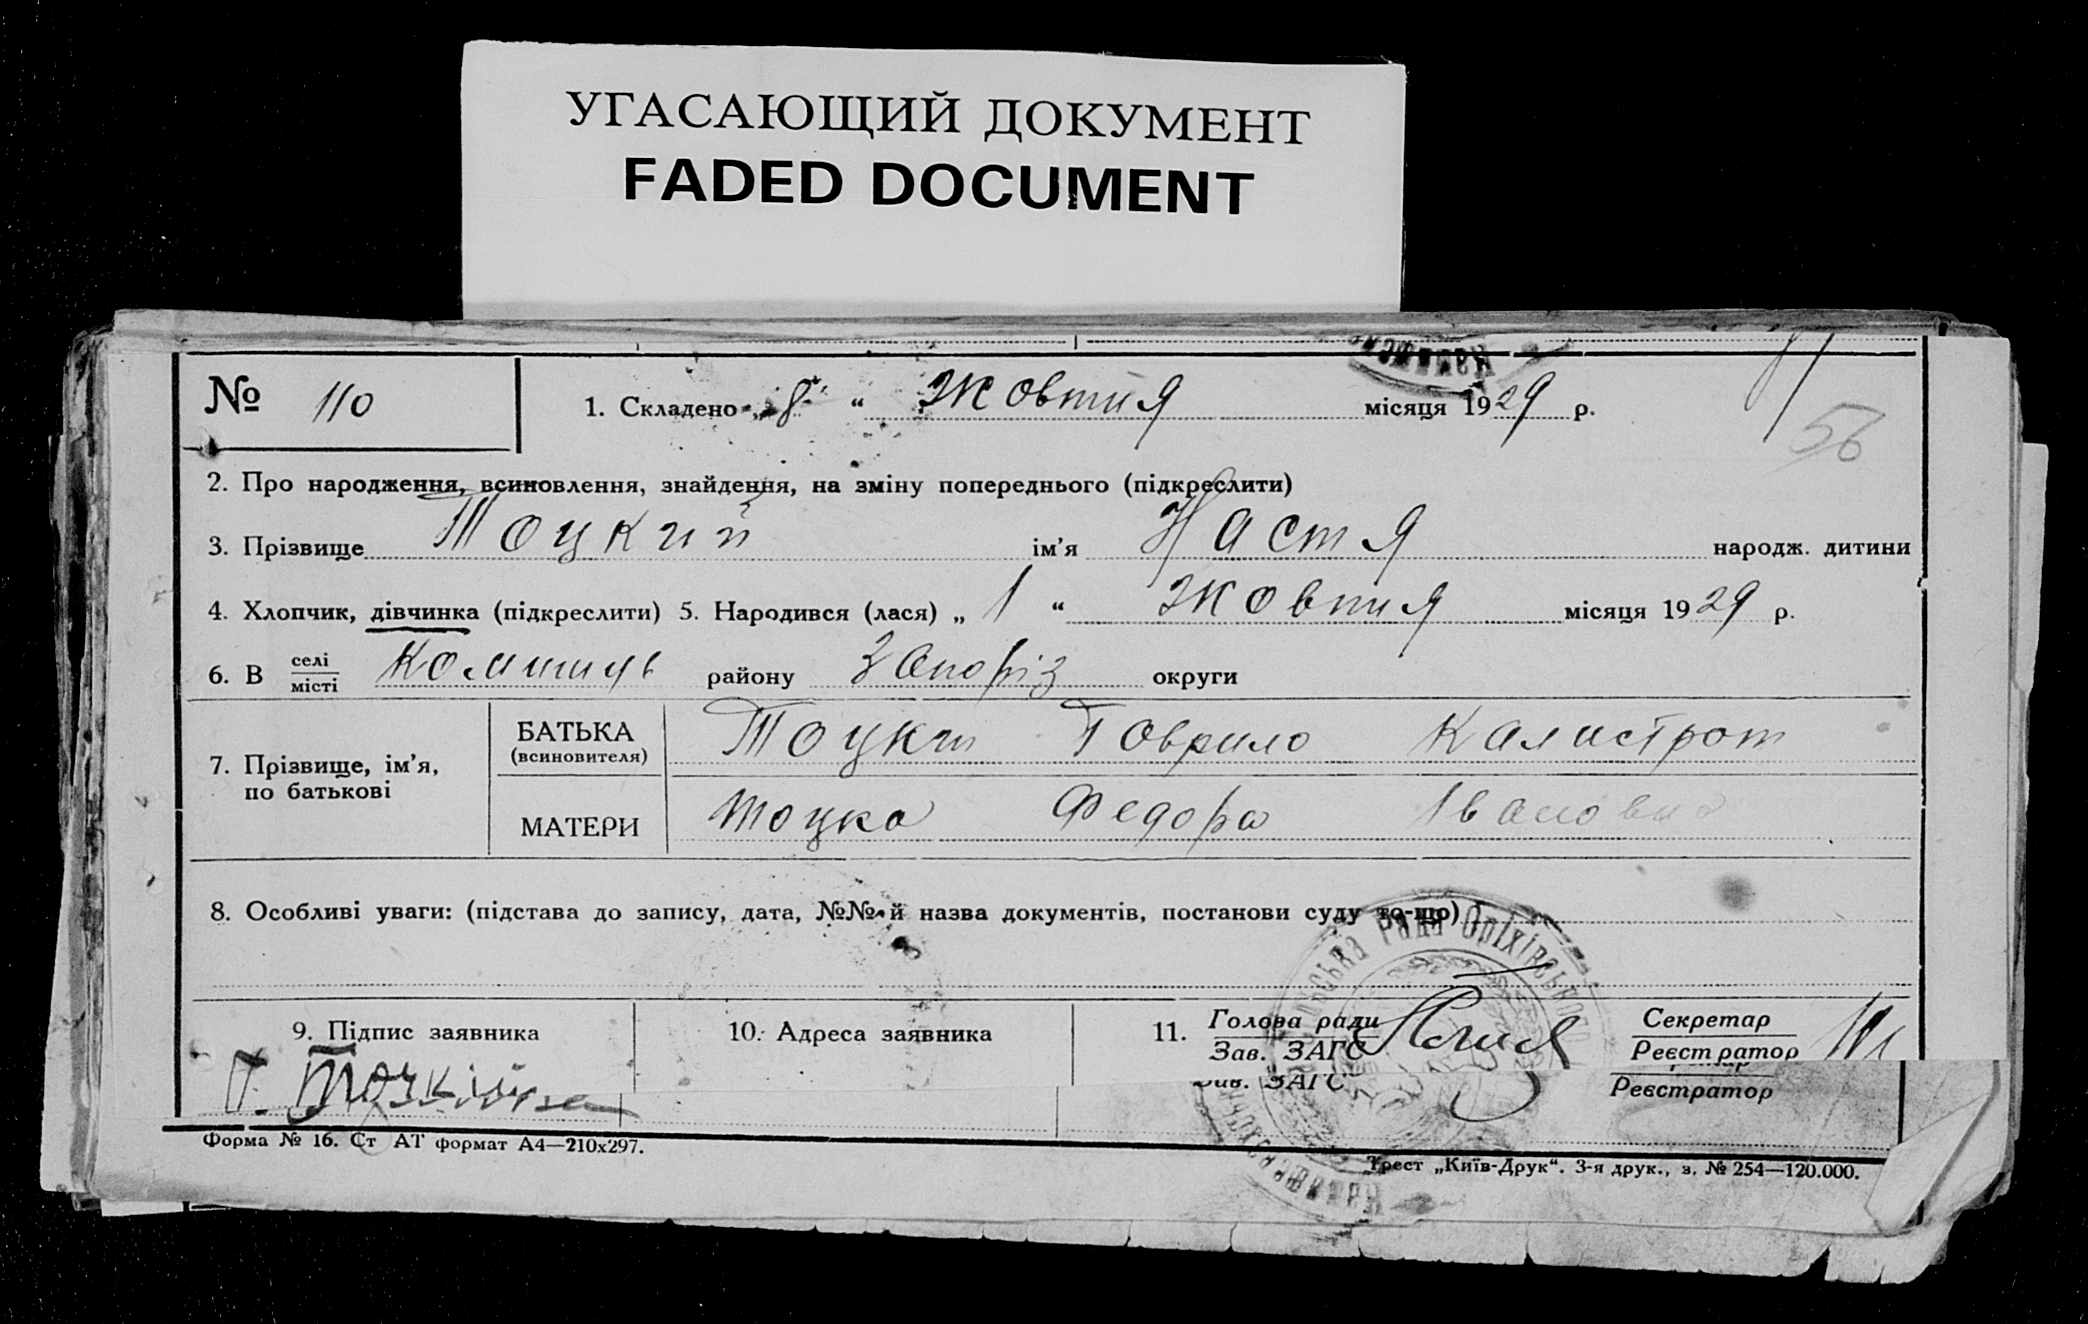 УГАСАЮЩИЙ ДОКУМЕНТ
FADED DOCUMENT
№ 110
1. Складено „8“ Жовтня місяця 1929 р.
56
2. Про народження, всиновлення, знайдення, на зміну попереднього (підкреслити)
3. Прізвище Тоцкий ім'я Настя народж. дитини
4. Хлопчик, дівчинка (підкреслити) 5. Народився (лася) „1“ Жовтня місяця 1929 р.
6. В селі місті Комишув району Запоріз округи
7. Прізвище, ім'я, по батькові
БАТЬКА (всиновителя) Тоцки Говрило Калистрот
МАТЕРИ Тоцка Федора Івановна
8. Особливі уваги: (підстава до запису, дата, №№ й назва документів, постанови суду то-що)
Рада Оріхівського
9. Підпис заявника
10. Адреса заявника
11. Голова ради
Зав. ЗАГС
Секретар
Реєстратор
Зав. ЗАГС
Реєстратор
Форма № 16. Ст АТ формат А4—210х297.
Трест „Київ-Друк“. 3-я друк., з. № 254—120.000.